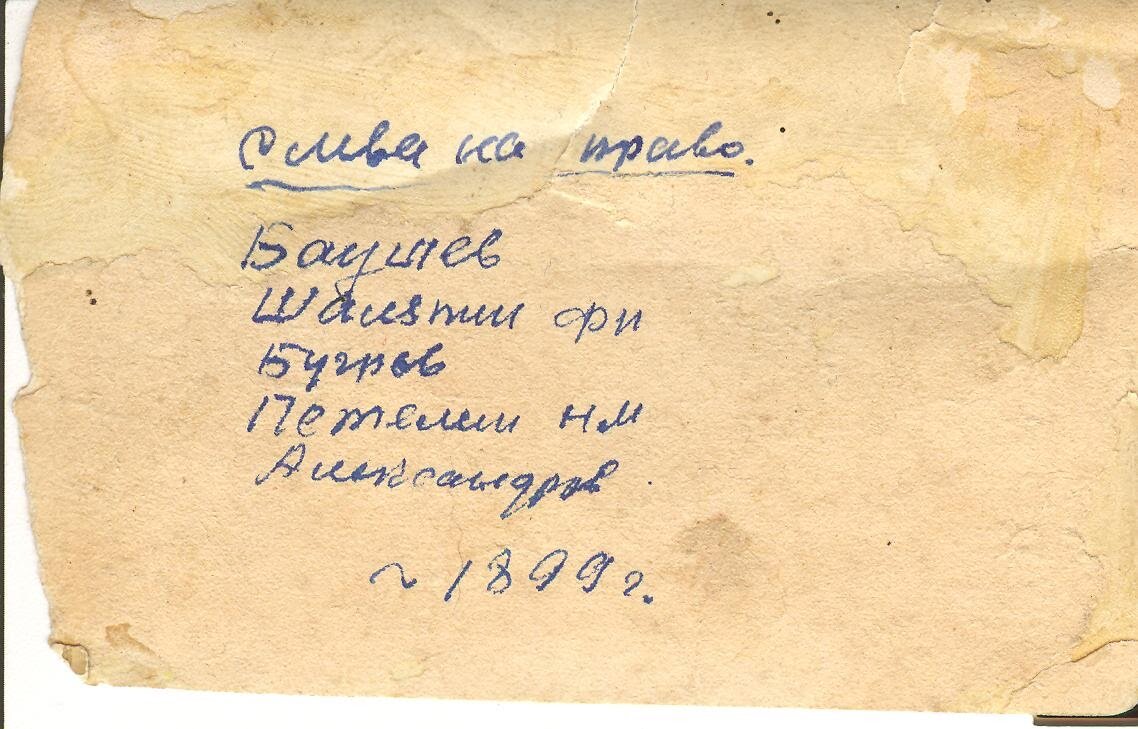 Слева на право.
Баушев
Шаляпин фи
Бугров
Петелин нм
Александров
~ 1899 г.